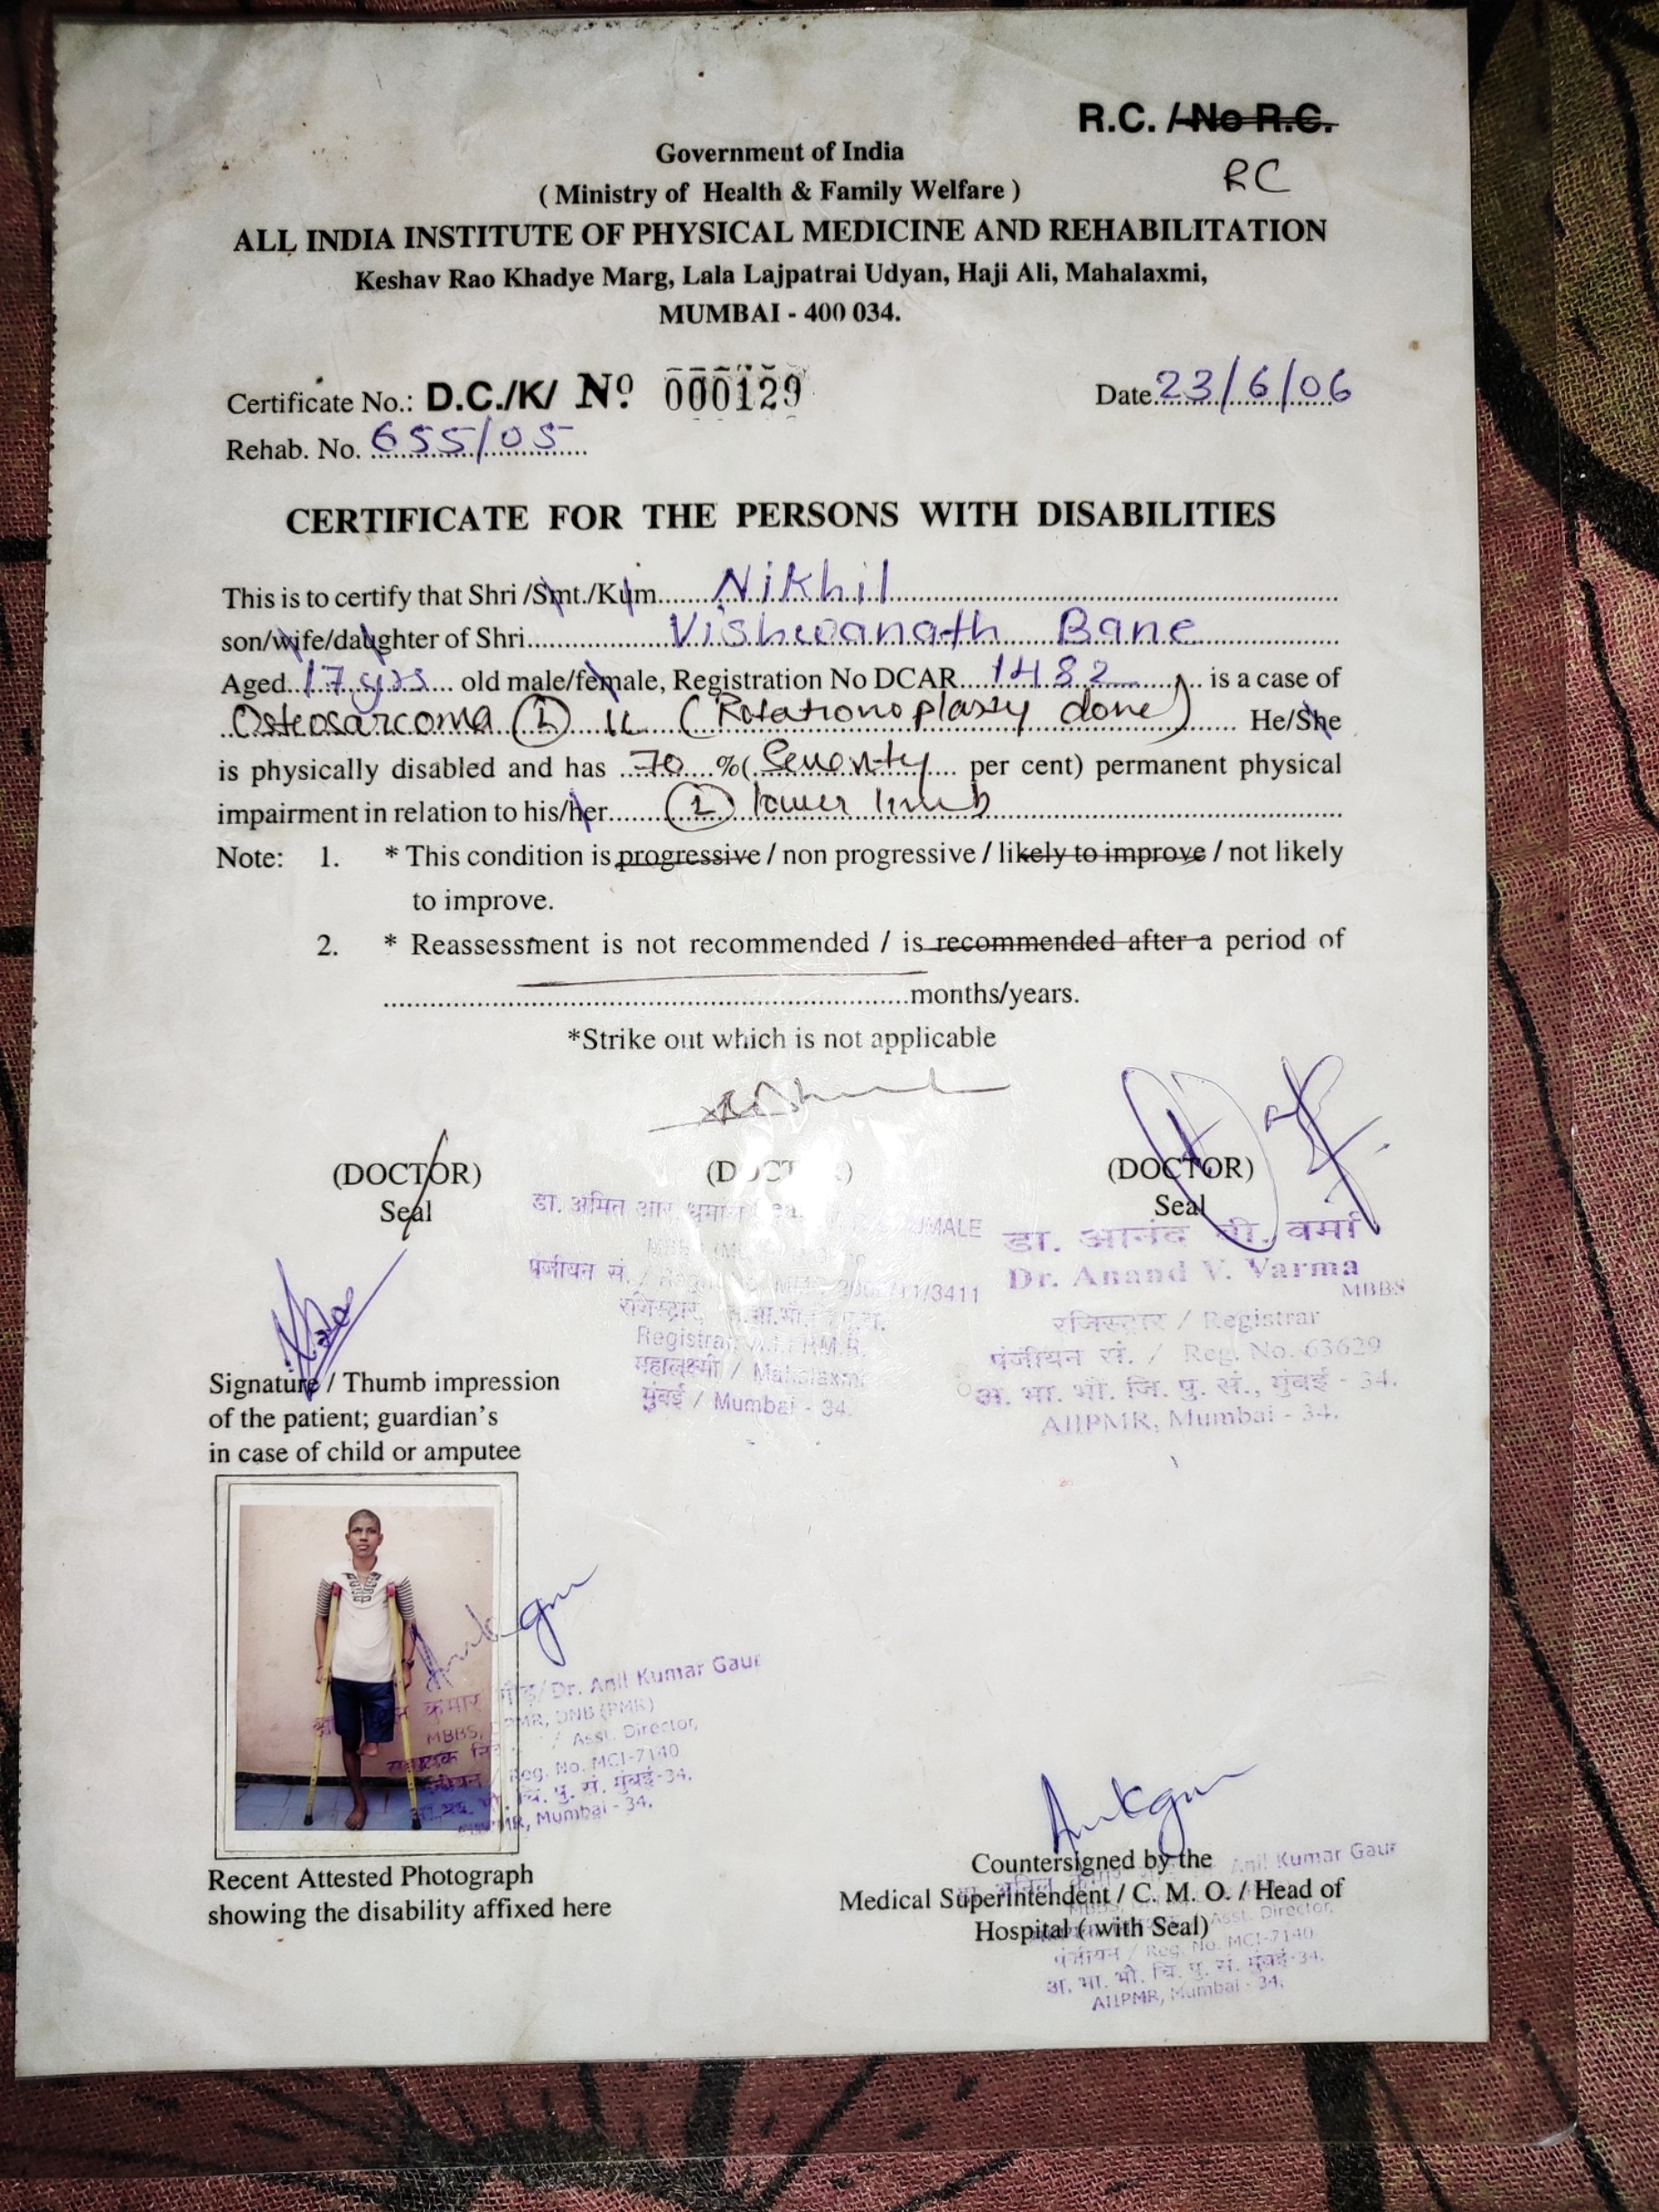 R.C. / No R.C.
RC
Government of India
( Ministry of Health & Family Welfare )
ALL INDIA INSTITUTE OF PHYSICAL MEDICINE AND REHABILITATION
Keshav Rao Khadye Marg, Lala Lajpatrai Udyan, Haji Ali, Mahalaxmi,
MUMBAI - 400 034.
Certificate No.: D.C./K/ Nº 000129 Date 23/6/06
Rehab. No. 655/05
CERTIFICATE FOR THE PERSONS WITH DISABILITIES
This is to certify that Shri /Smt./Kum Nikhil
son/wife/daughter of Shri Vishwanath Bane
Aged 17 yrs old male/female, Registration No DCAR 1482 is a case of
Osteosarcoma (L) LL (Rotationoplasty done) He/She
is physically disabled and has 70 %( Seventy per cent) permanent physical
impairment in relation to his/her (L) lower limb
Note: 1. * This condition is progressive / non progressive / likely to improve / not likely
to improve.
2. * Reassessment is not recommended / is recommended after a period of
months/years.
*Strike out which is not applicable
(DOCTOR) (DOCTOR) (DOCTOR)
Seal Seal
डा. अमित आर.
पंजीयन सं. /
रजिस्ट्रार,
Registrar A.I.I.P.M.R.
महालक्ष्मी / Mahalaxmi
मुंबई / Mumbai - 34.
डा. आनंद वी. वर्मा
Dr. Anand V. Varma
MBBS
रजिस्ट्रार / Registrar
पंजीयन सं. / Reg. No. 63629
अ. भा. भौ. जि. पु. सं., मुंबई - 34.
AIIPMR, Mumbai - 34.
Signature / Thumb impression
of the patient; guardian's
in case of child or amputee
कुमार गौड़/ Dr. Anil Kumar Gaur
MBBS, DPMR, DNB (PMR)
/ Asst. Director,
/ Reg. No. MCI-7140
चि. पु. सं. मुंबई-34.
AIIPMR, Mumbai - 34.
Recent Attested Photograph
showing the disability affixed here
Countersigned by the
Medical Superintendent / C. M. O. / Head of
Hospital ( with Seal)
Anil Kumar Gaur
Asst. Director,
पंजीयन / Reg. No. MCI-7140
अ. भा. भौ. चि. पु. सं. मुंबई-34.
AIIPMR, Mumbai - 34.